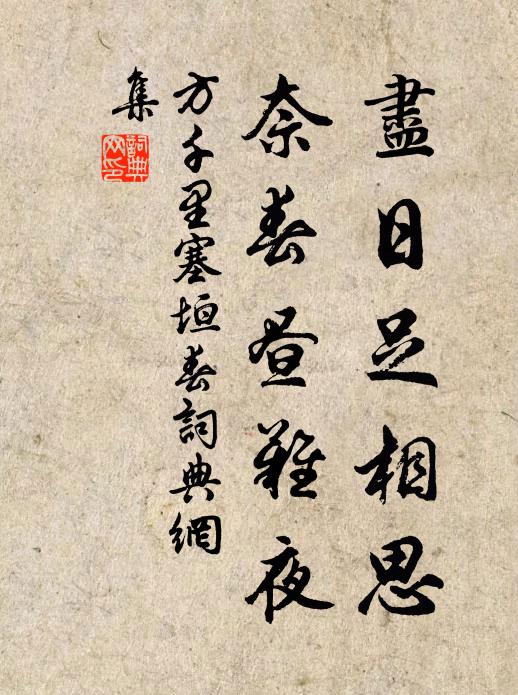 盡日足相思
奈春晝難夜
方千里塞垣春詞典網
集
詞典
网印